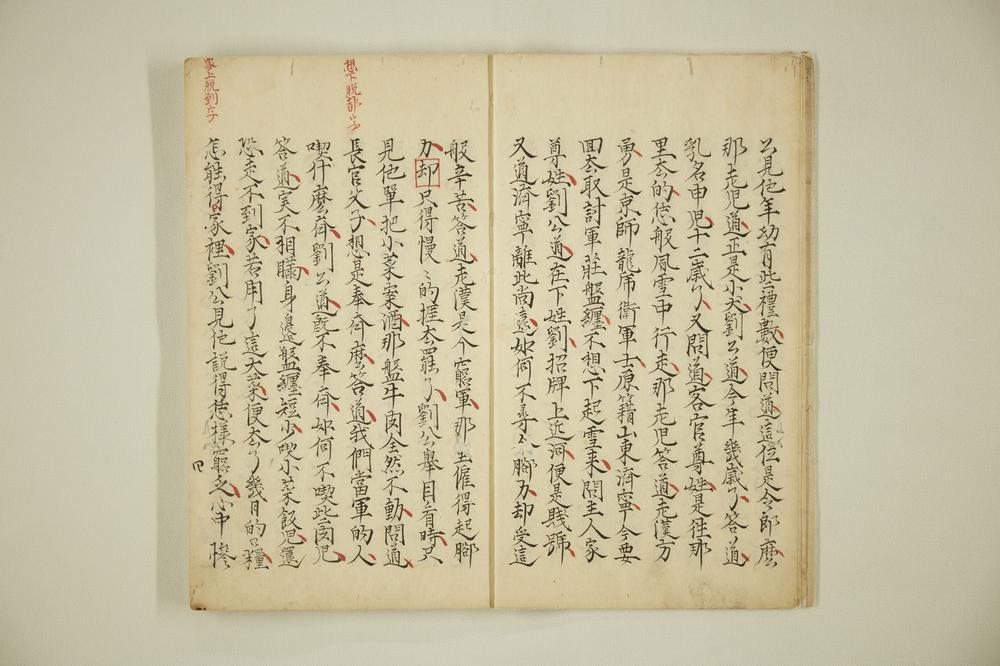 公見他年幼有些禮數便問道這位是令郎麼
那老兒道正是小犬劉公道今年幾歲了答道
乳名申兒十二歲了又問道客官尊姓是往那
里去的恁般風雪中行走那老兒答道老漢方
勇是京師龍虎衛軍士原籍山東濟寧今要
回去取討軍莊盤纏不想下起雪來問主人家
尊姓劉公道在下姓劉招牌上近河便是賤號
又道濟寧離此尚遠如何不尋个腳力却受這
般辛苦答道老漢是个窮軍那里僱得起腳
力却只得慢〻的捱去罷了劉公舉目看時只
見他單把小菜案酒那盤牛肉全然不動問道
長官父子想是奉齋麼答道我們當軍的人
喫什麼齋劉公道既不奉齋如何不喫些肉兒
答道实不相瞞身邊盤纏短少喫小菜飯兒還
恐走不到家若用了這大菜便去了幾日的口糧
怎能得家裡劉公見他說得恁樣窮乏心中慘
想下脫都字
家上脫到字
四